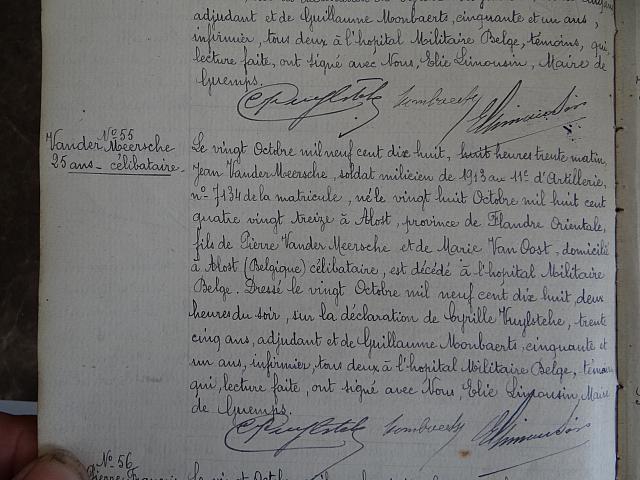 adjudant et de Guillaume Monbaerts, cinquante et un ans,
infirmier, tous deux à l'hopital Militaire Belge, témoins, qui,
lecture faite, ont signé avec Nous, Elie Limousin, Maire de
Guemps.
No 55
Vander Meersche
25 ans - célibataire
Le vingt Octobre mil neuf cent dix huit, huit heures trente matin,
Jean Vander Meersche, soldat milicien de 1913 au 11e d'Artillerie,
no 7134 de la matricule, né le vingt huit Octobre mil huit cent
quatre vingt treize à Alost, province de Flandre Orientale,
fils de Pierre Vander Meersche et de Marie Van Oost, domicilié
à Alost (Belgique) célibataire, est décédé à l'hopital Militaire
Belge. Dressé le vingt Octobre mil neuf cent dix huit, deux
heures du soir, sur la déclaration de Cyrille Vuylsteke, trente
cinq ans, adjudant et de Guillaume Monbaerts, cinquante et
un ans, infirmier, tous deux à l'hopital Militaire Belge, témoins
qui, lecture faite, ont signé avec Nous, Elie Limousin, Maire
de Guemps.
No 56